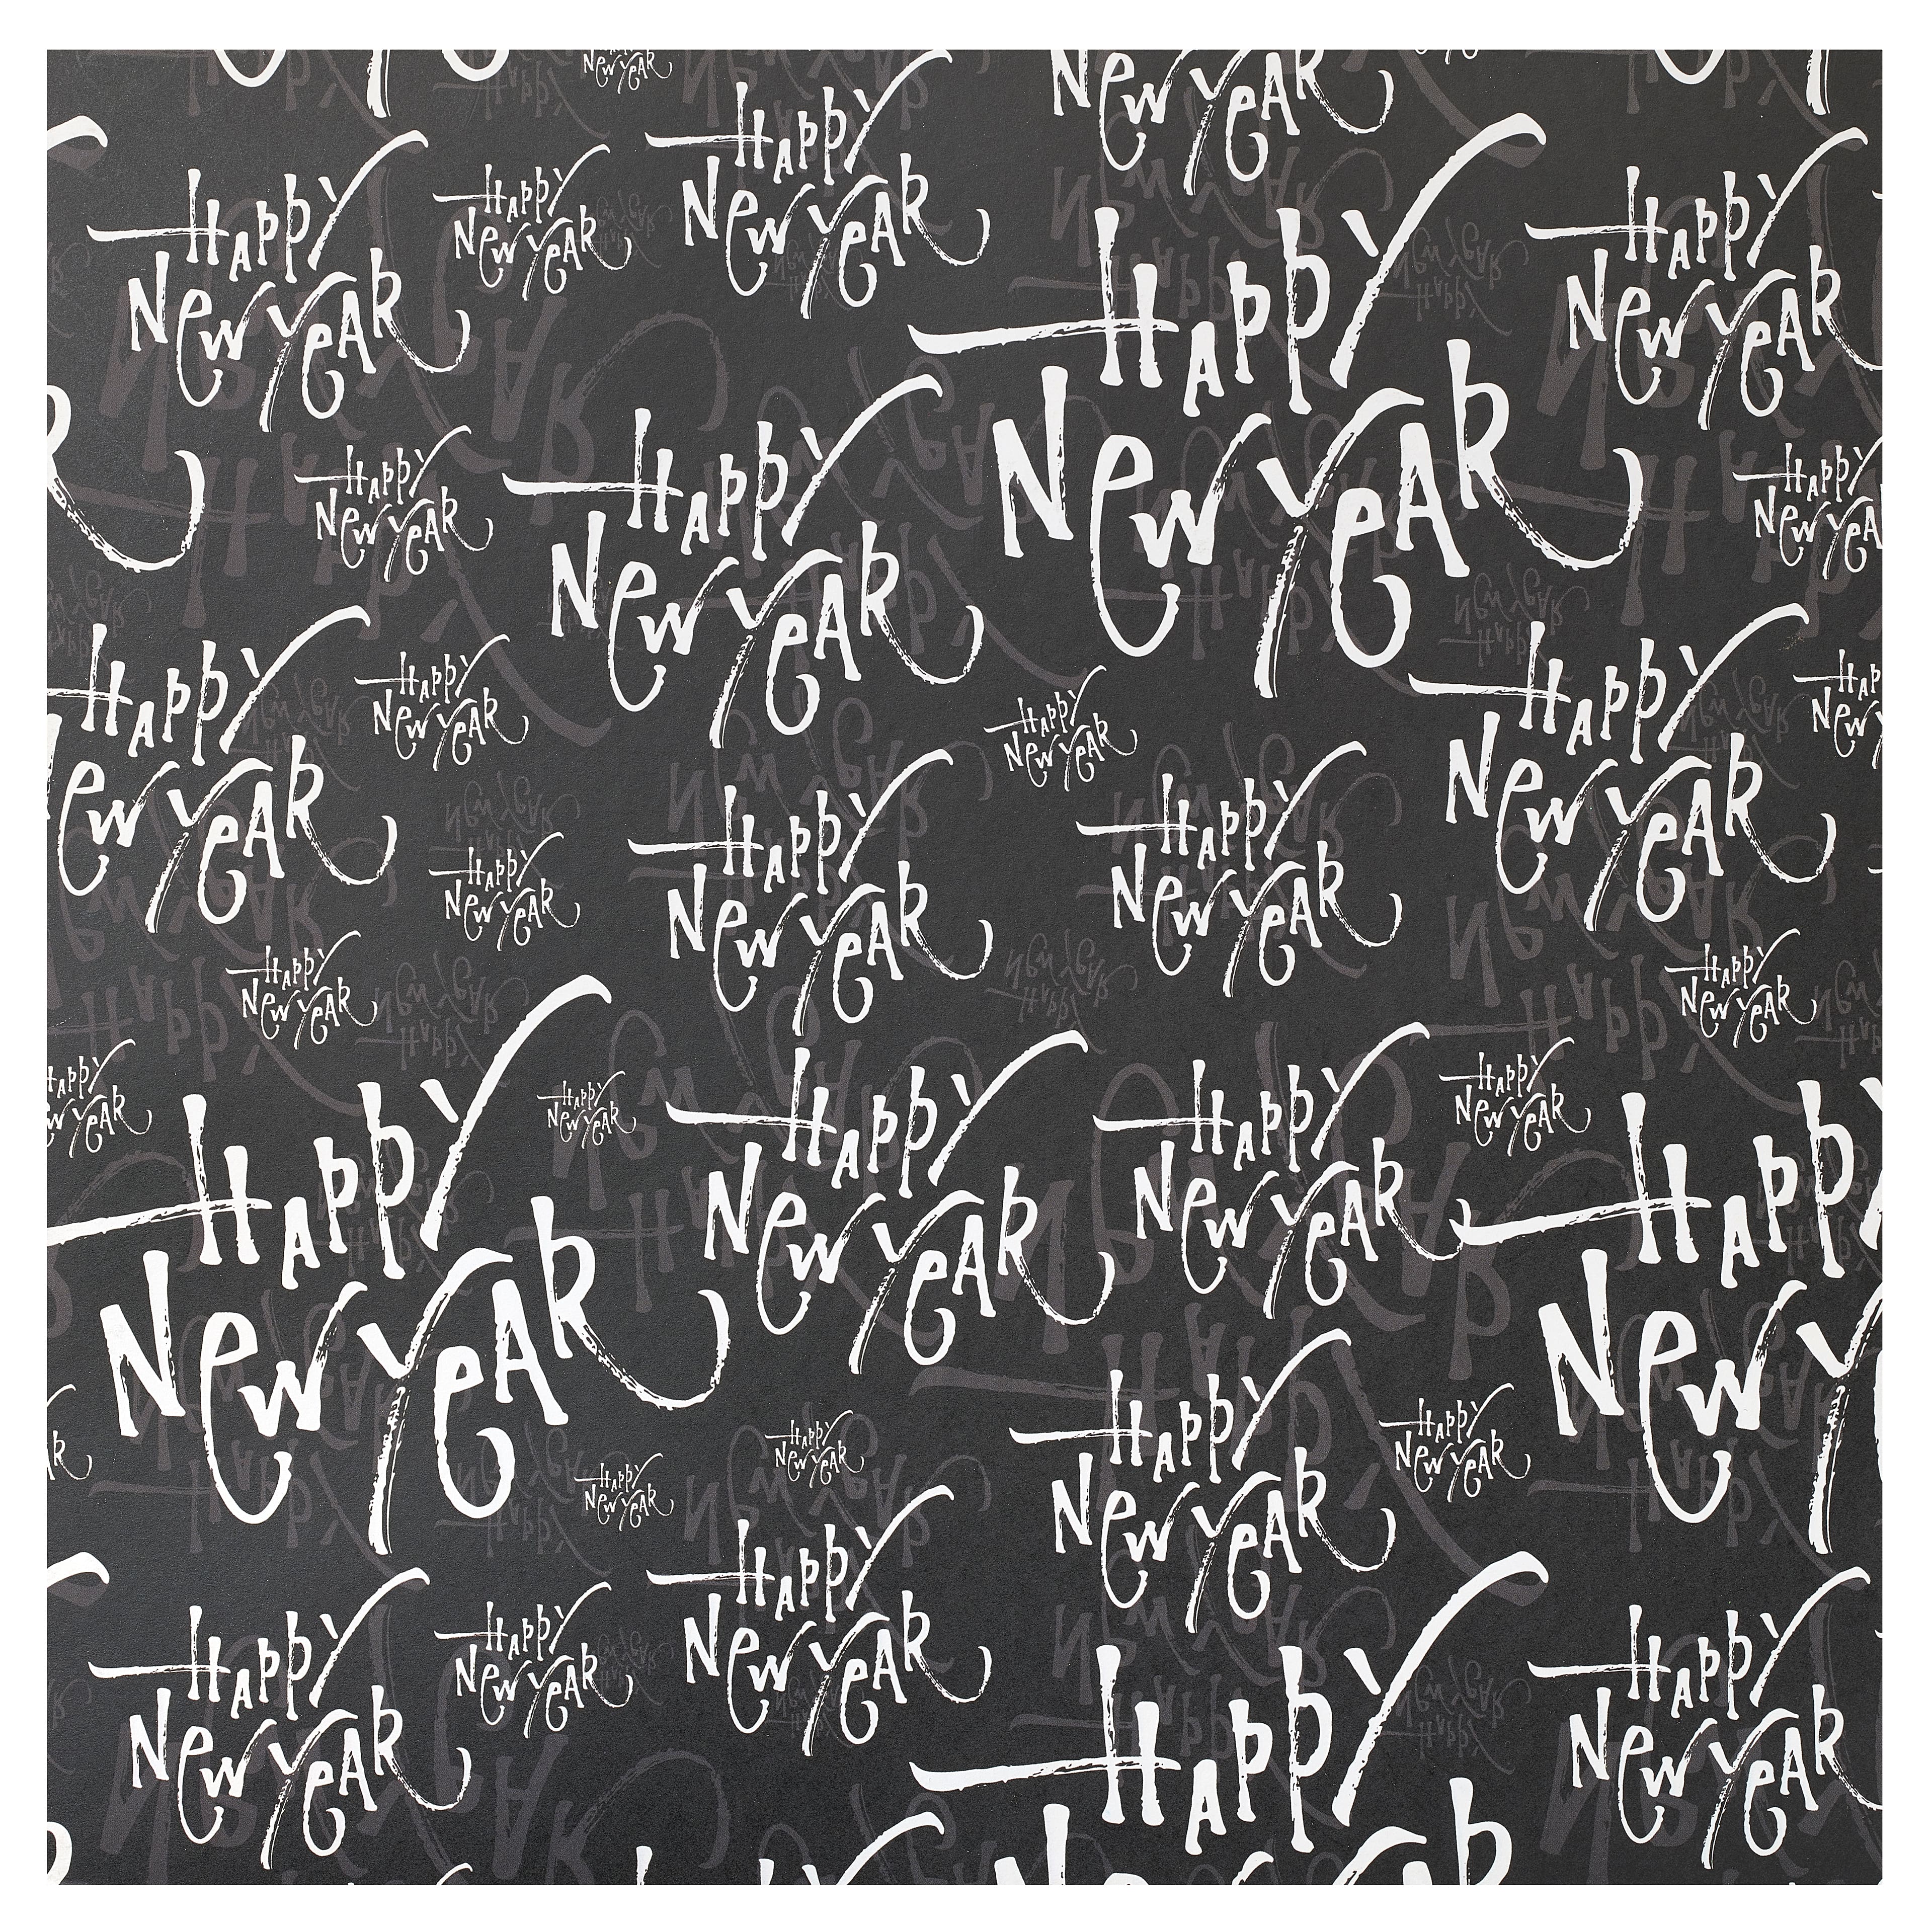 New Year
New Year
Happy
New Year
Happy
New Year
Happy
New Year
Happy
New Year
Happy
New Year
Happy
New Year
Happy
New Yea
Happy
New Year
Happy
New Year
Happy
ew Year
Happy
New Year
Hap
New
Happy
New Year
Happy
New Year
Happy
New Year
Happy
New Year
Happy
New Year
Happy
New Year
appy
w Year
Happy
New Year
Happy
New Year
Happy
New Year
Happy
New Year
Happy
New Year
Happ
New Y
Happy
New Year
Happy
New Year
Happy
New Year
Happy
New Year
Happy
New Year
Happy
New Year
Happy
New Year
Happy
New Year
Happy